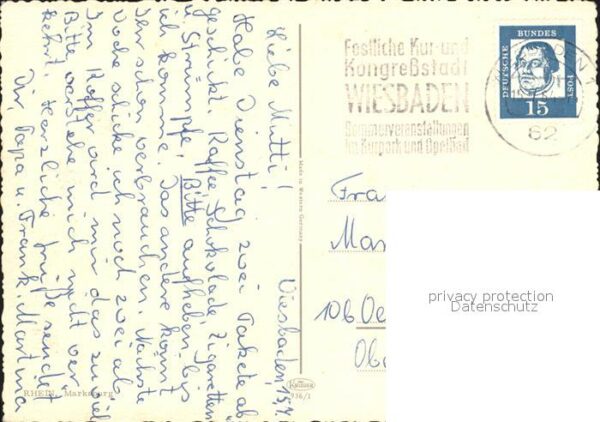 Wiesbaden, 5.7.
Liebe Mutti!
Habe Dienstag zwei Pakete ab
geschickt. Kaffee Schokolade Zigaretten
u. Strümpfe. Bitte aufheben bis
ich komme. Das andere könnt
Ihr schon verbrauchen. Nächste
Woche schicke ich noch zwei ab
Im Koffer wird mir das zu viel
Bitte verstehe mich nicht ver
kehrt. Herzliche Grüße sendet
Dir, Papa u. Frank Martina
RHEIN, Marksburg
Made in Western Germany
Krüger
936/1
Festliche Kur- und
Kongreßstadt
WIESBADEN
Sommerveranstaltungen
im Kurpark und Opelbad
62
DEUTSCHE BUNDES POST
15
Fra
Mar
106 Oe
Ob
privacy protection
Datenschutz